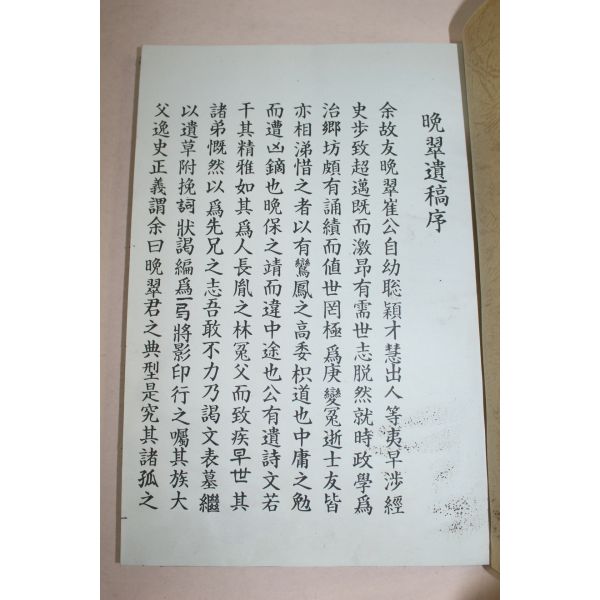 晩翠遺稿序
余故友晩翠崔公自幼聡穎才慧出人等夷早涉經
史步致超邁既而激昻有需世志脱然就時政學爲
治鄕坊頗有誦績而値世罔極爲庚變冤逝士友皆
亦相涕惜之者以有鸞鳳之高委枳道也中庸之勉
而遭凶鏑也晩保之靖而違中途也公有遺詩文若
干其精雅如其爲人長胤之林冤父而致疾早世其
諸弟慨然以爲先兄之志吾敢不力乃謁文表墓繼
以遺草附挽詞狀謁編爲一弓將影印行之囑其族大
父逸史正義謂余曰晩翠君之典型是究其諸孤之